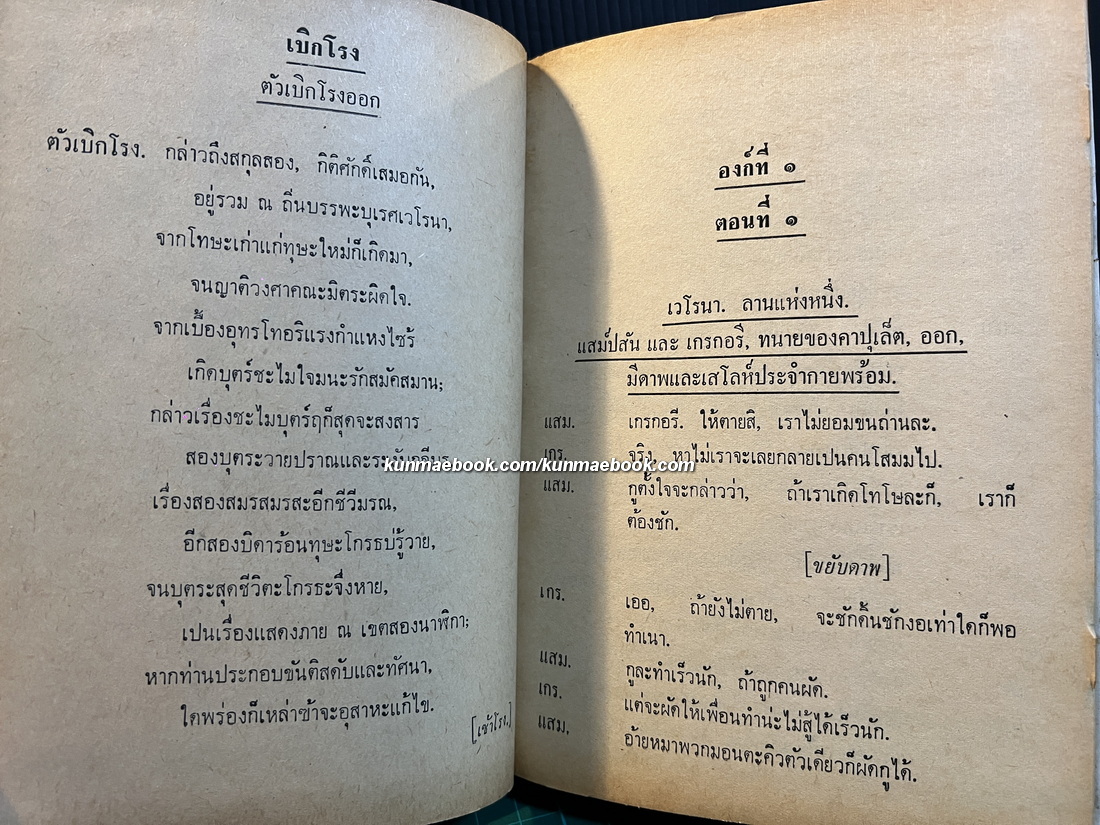 เบิกโรง
ตัวเบิกโรงออก
ตัวเบิกโรง. กล่าวถึงสกุลสอง, กิติศักดิ์เสมอกัน,
อยู่รวม ณ ถิ่นบรรพะบุเรศเวโรนา,
จากโทษะเก่าแก่ทุษะใหม่ก็เกิดมา,
จนญาติวงศาคณะมิตระผิดใจ.
จากเบื้องอุทรโทอริแรงกำแหงไซร้
เกิดบุตร์ชะไมใจมนะรักสมัคสมาน;
กล่าวเรื่องชะไมบุตร์ฤก็สุดจะสงสาร
สองบุตระวายปราณและ
เรื่องสองสมรสมรสะอีกชีวีมรณ,
อีกสองบิดาร้อนทุษะโกรธบ่รู้วาย,
จนบุตระสุดชีวิตะโกรธะจึ่งหาย,
เปนเรื่องแสดงภาย ณ เขตสองนาฬิกา;
หากท่านประกอบขันติสดับและทัศนา,
ใดพร่องก็เหล่าข้าจะอุสาหะแก้ไข.
[เข้าโรง.]
องก์ที่ ๑
ตอนที่ ๑
เวโรนา. ลานแห่งหนึ่ง.
แสม์ปสัน และ เกรกอรี, ทนายของคาปุเล็ต, ออก,
มีดาพและเสโลห์ประจำกายพร้อม.
แสม. เกรกอรี. ให้ตายสิ, เราไม่ยอมขนถ่านละ.
เกร. จริง, หาไม่เราจะเลยกลายเปนคนโสมมไป.
kunmaebook.com/kunmaebook.com
แสม. กูตั้งใจจะกล่าวว่า, ถ้าเราเกิดโทโษละก็, เราก็
ต้องชัก.
[ขยับดาพ]
เกร. เออ, ถ้ายังไม่ตาย, จะชักดิ้นชักงอเท่าใดก็พอ
ทำเนา.
แสม. กูละทำเร็วนัก, ถ้าถูกคนผัด.
เกร. แต่จะผัดให้เพื่อนทำน่ะไม่สู้ได้เร็วนัก.
แสม. อ้ายหมาพวกมอนตะคิวตัวเดียวก็ผัดกูได้.